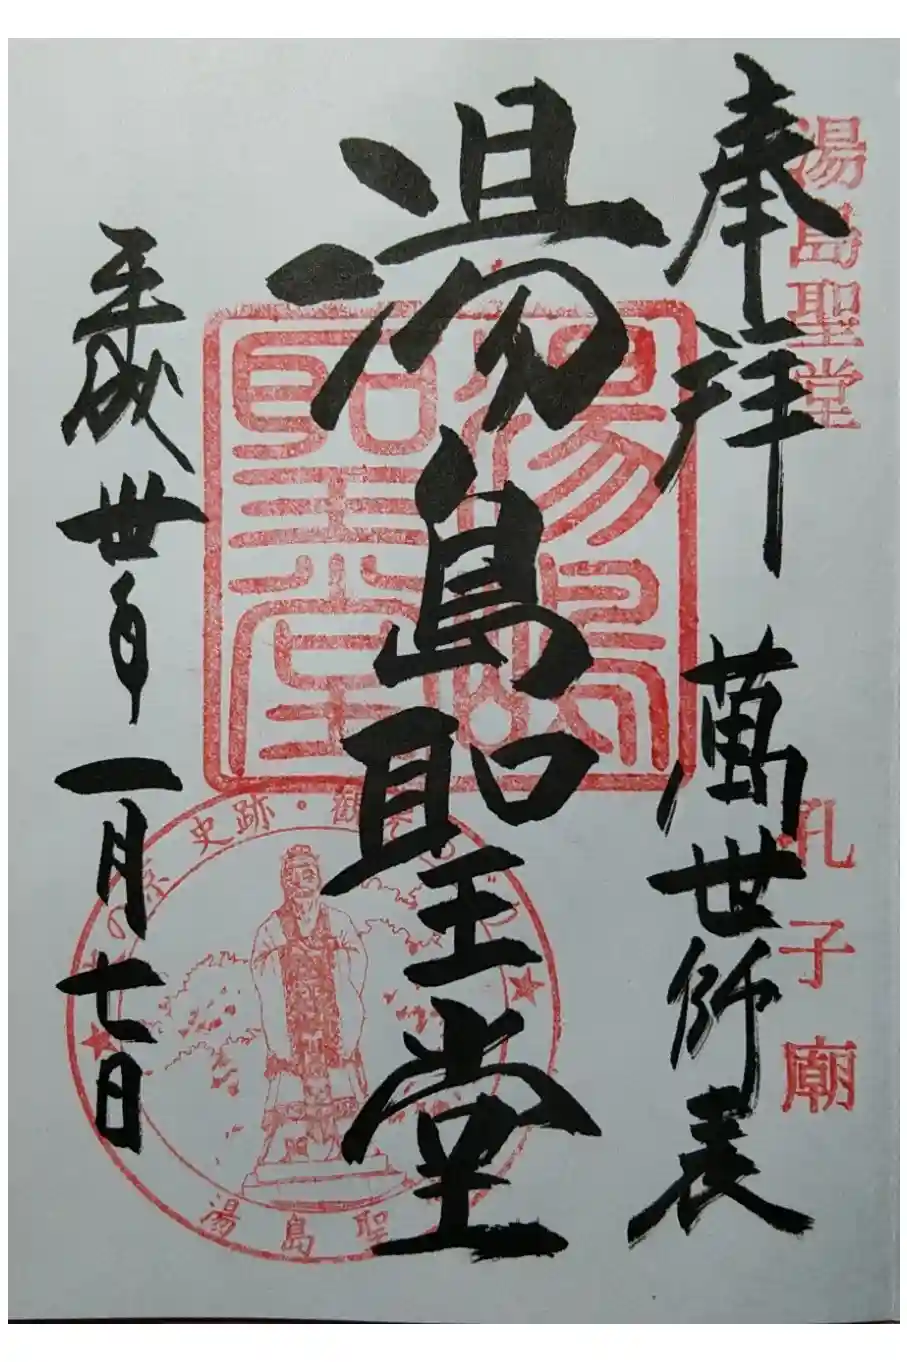 湯島聖堂
孔子廟
奉拝
萬世師表
湯島聖堂
湯島聖堂
平成卅年一月七日
史跡・観
湯島聖